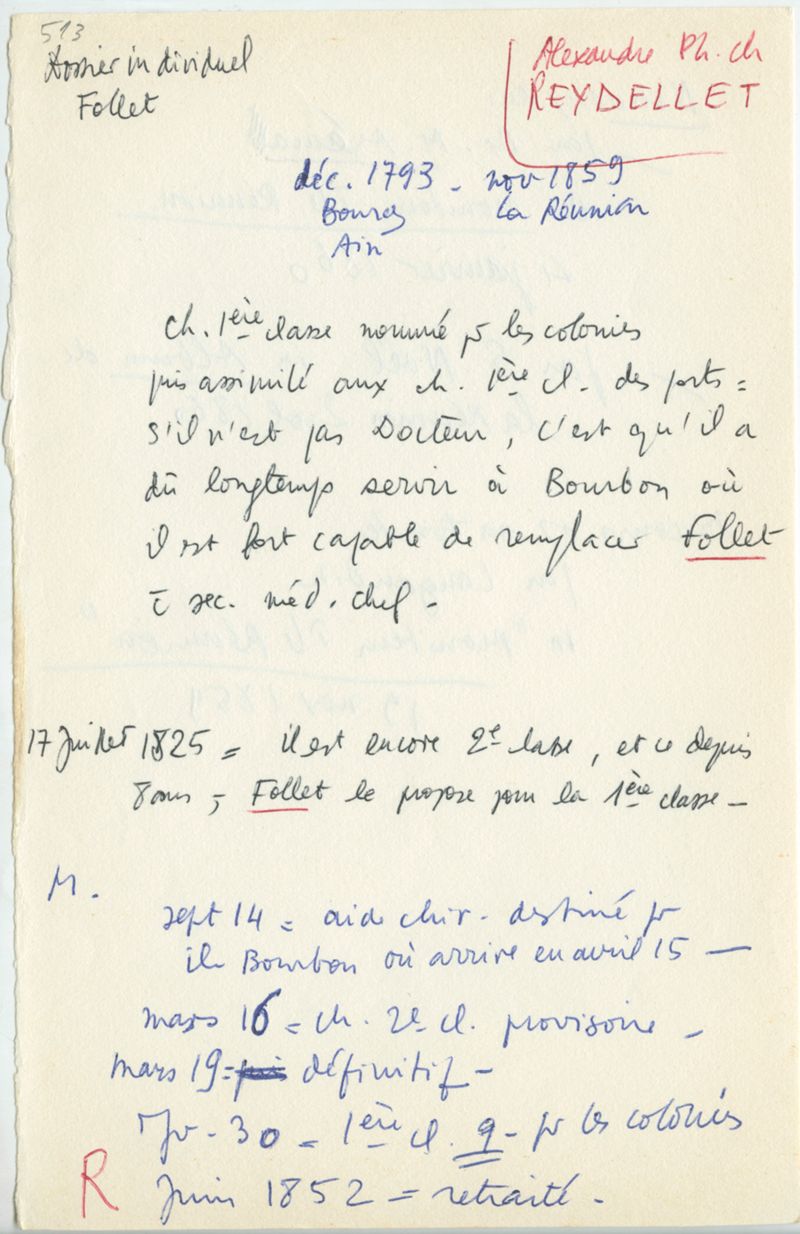 513
Dossier individuel
Follet
Alexandre Ph. ch
REYDELLET
déc. 1793 - nov 1859
Bourg La Réunion
Ain
ch. 1ère classe nommé pr les colonies
puis assimilé aux ch. 1ère cl. des ports =
s'il n'est pas Docteur, c'est qu'il a
dû longtemps servir à Bourbon où
il est fort capable de remplacer Follet
sec. méd. chef -
17 Juillet 1825 = il est encore 2e classe, et ce depuis
8 ans ; Follet le propose pour la 1ère classe -
M.
sept 14 = aide chir. destiné pr
île Bourbon où arrive en avril 15 -
mars 16 = ch. 2e cl. provisoire -
mars 19 = définitif -
30 = 1ère cl. - pr les colonies
R Juin 1852 = retraité -